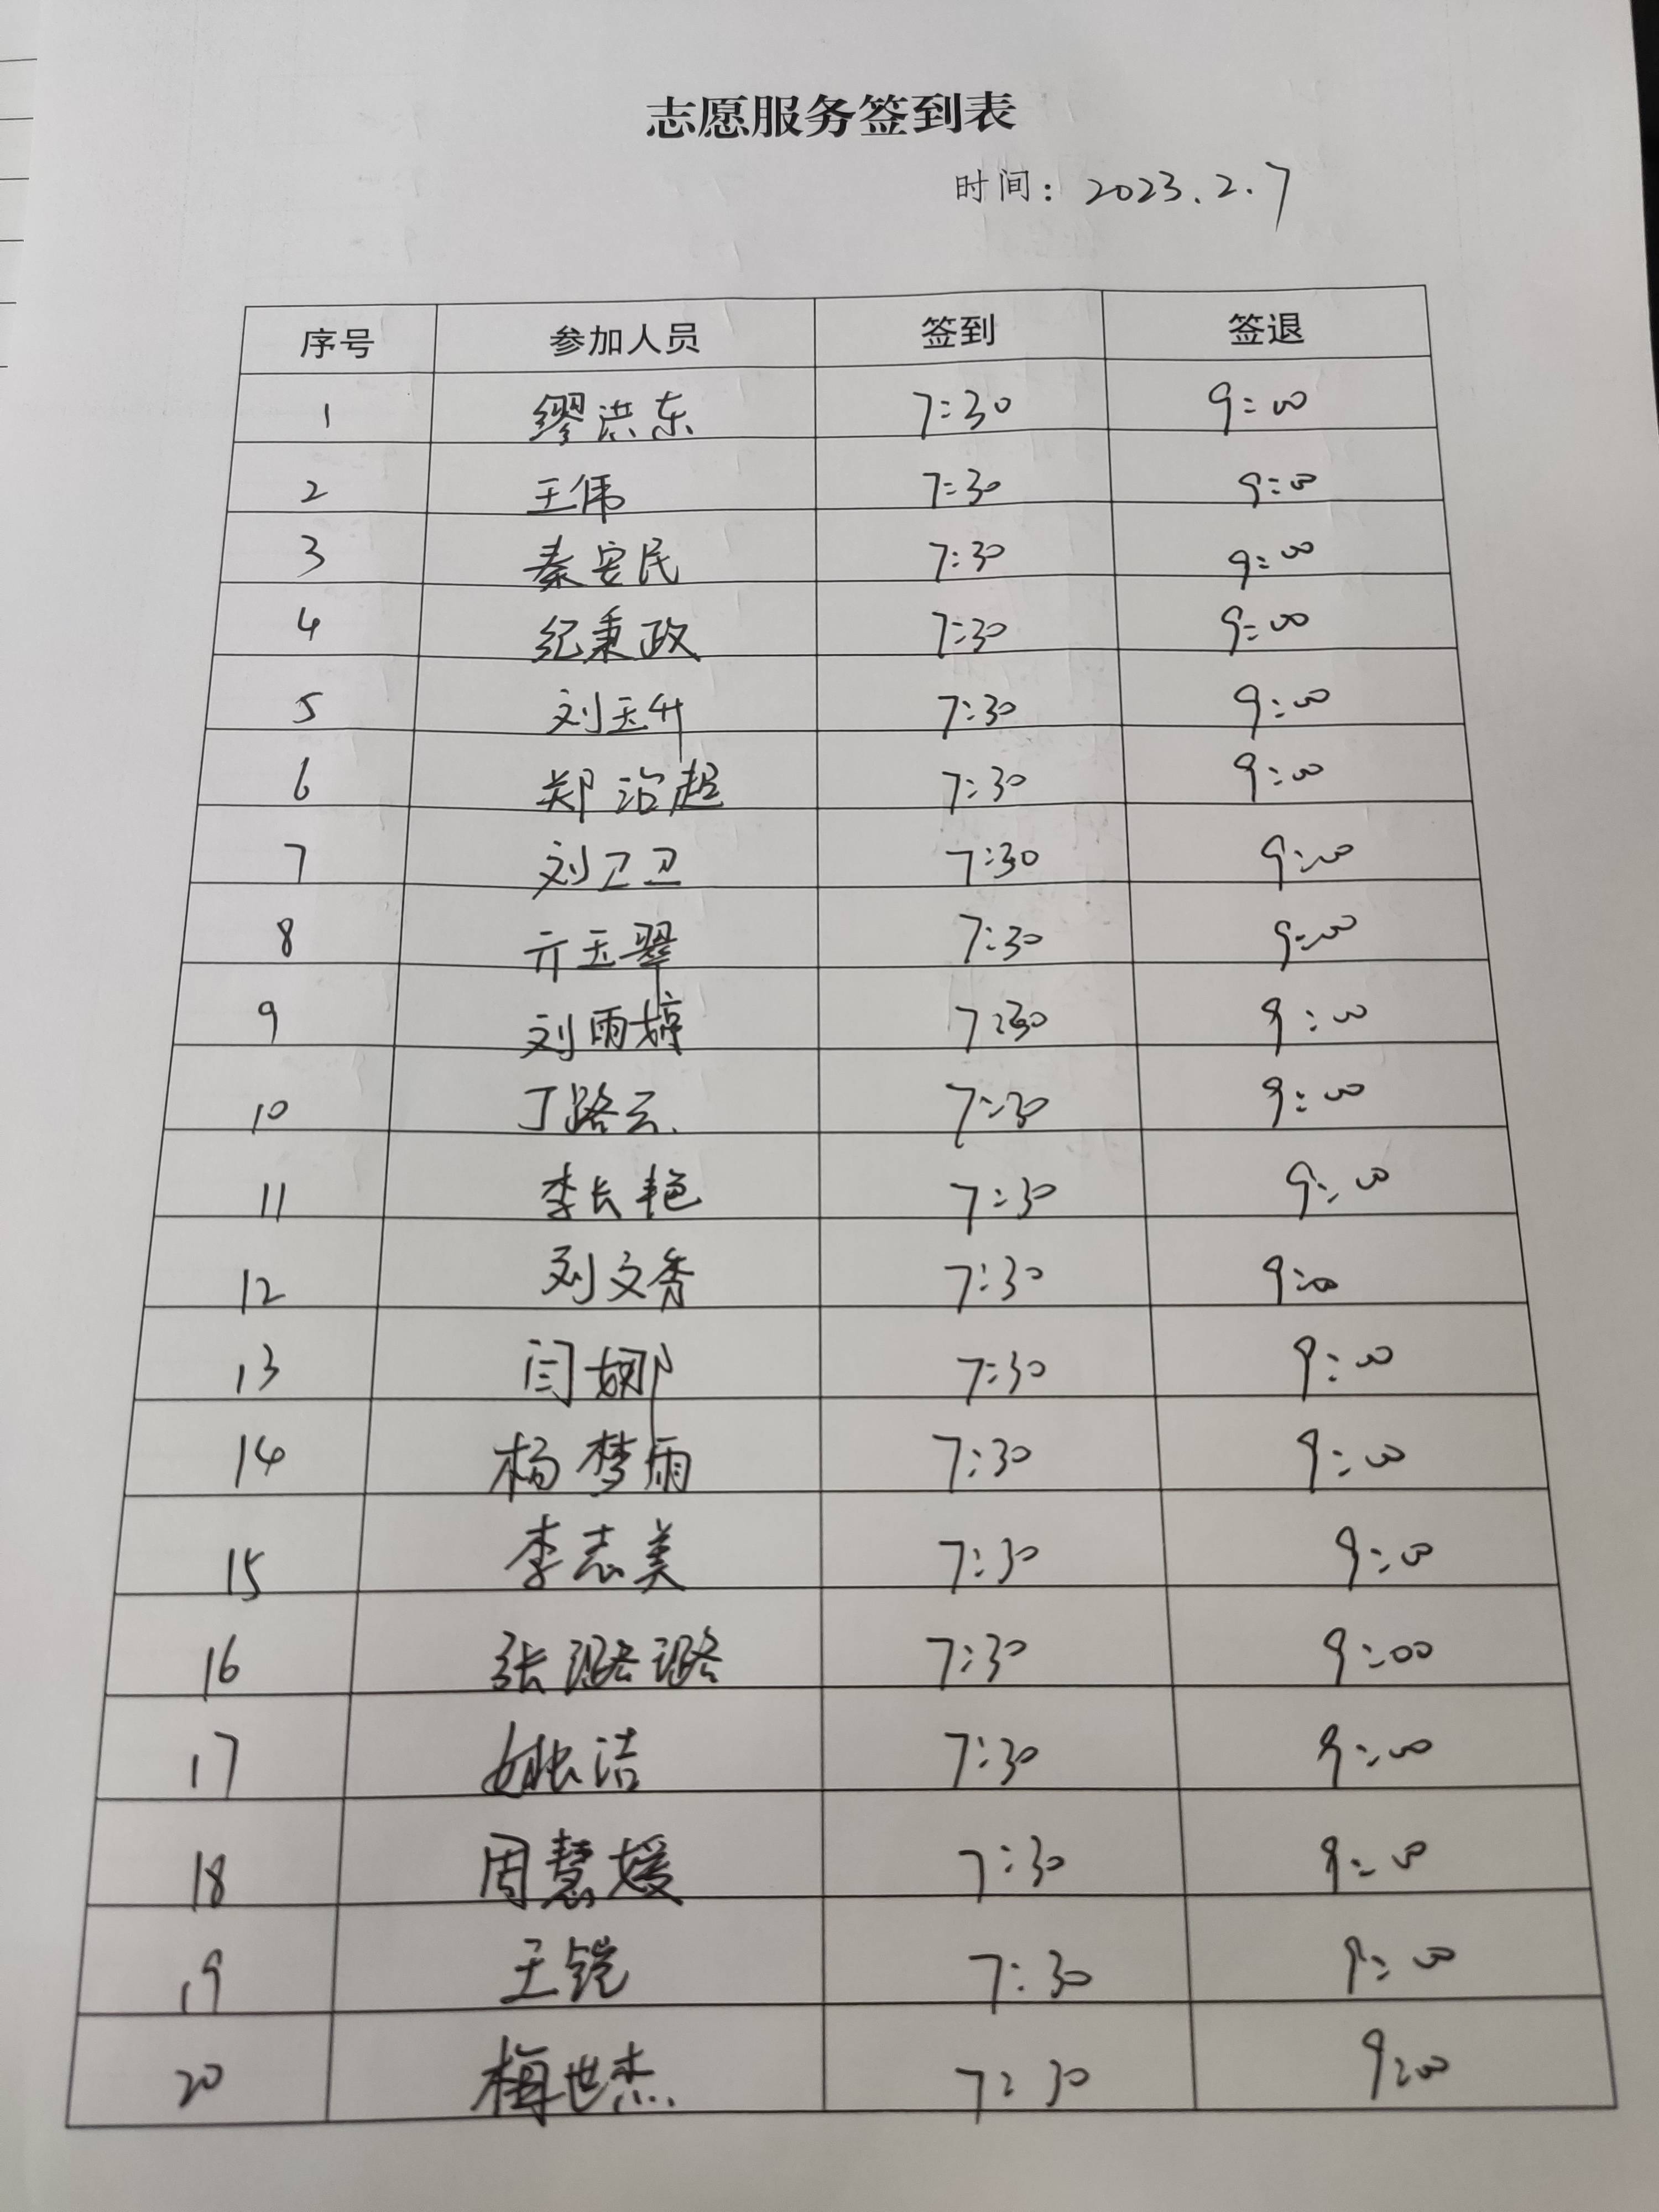 志愿服务签到表
时间: 2023.2.7
序号 参加人员 签到 签退
1 缪洪东 7:30 9:00
2 王伟 7:30 9:00
3 秦安民 7:30 9:00
4 纪秉政 7:30 9:00
5 刘玉升 7:30 9:00
6 郑治超 7:30 9:00
7 刘卫卫 7:30 9:00
8 亓玉翠 7:30 9:00
9 刘雨婷 7:30 9:00
10 丁路云 7:30 9:00
11 李长艳 7:30 9:00
12 刘文秀 7:30 9:00
13 闫娜 7:30 9:00
14 杨梦雨 7:30 9:00
15 李志美 7:30 9:00
16 张璐璐 7:30 9:00
17 姚洁 7:30 9:00
18 周慧媛 7:30 9:00
19 王铠 7:30 9:00
20 梅世杰 7:30 9:00